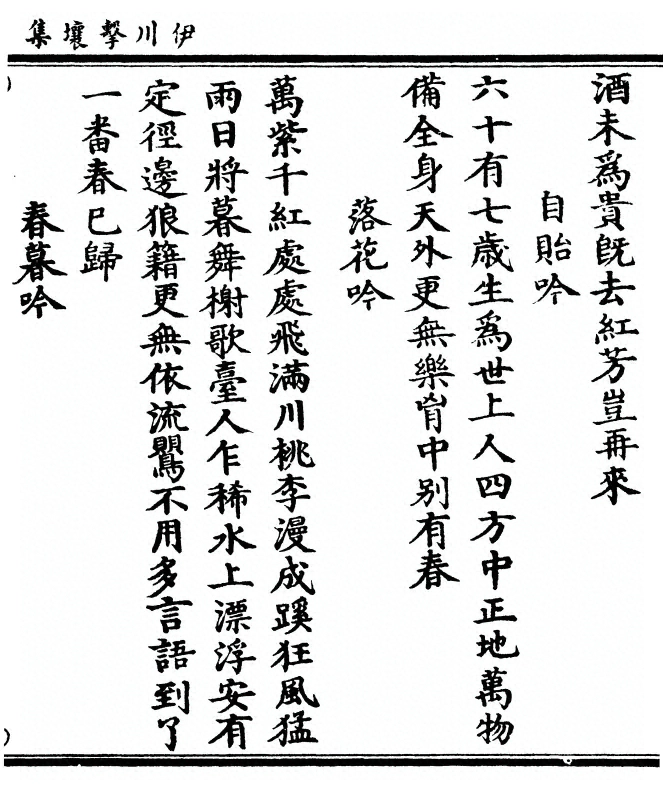 伊川擊壤集
酒未爲貴旣去紅芳豈再來
自貽吟
六十有七歲生爲世上人四方中正地萬物
備全身天外更無樂胷中別有春
落花吟
萬紫千紅處處飛滿川桃李漫成蹊狂風猛
雨日將暮舞榭歌臺人乍稀水上漂浮安有
定徑邊狼籍更無依流鶯不用多言語到了
一畨春已歸
春暮吟